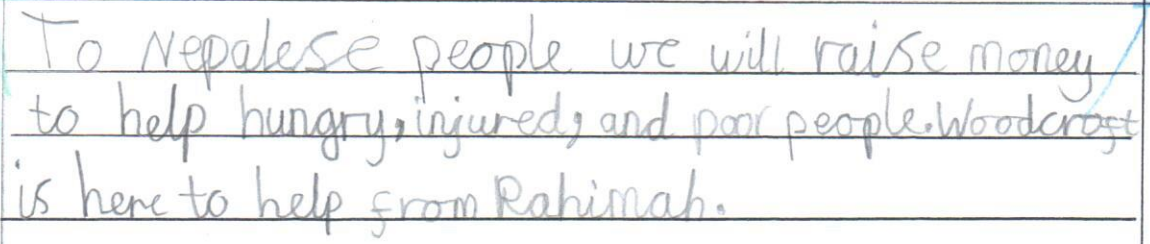 To Nepalese people we will raise money
to help hungry, injured, and poor people. Woodcroft
is here to help from Rahimah.